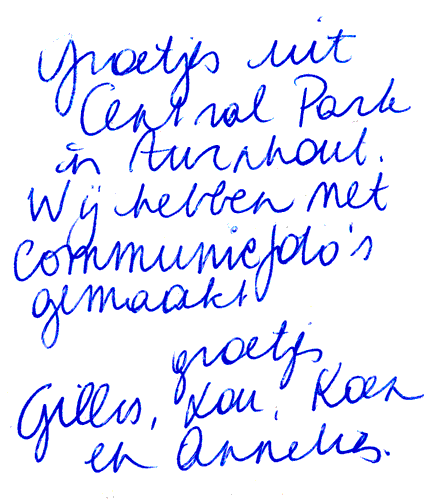 Groetjes uit
Central Park
in Turnhout.
Wij hebben net
communiefoto's
gemaakt
groetjs
Gilles, Lou, Koen
en Annelies.